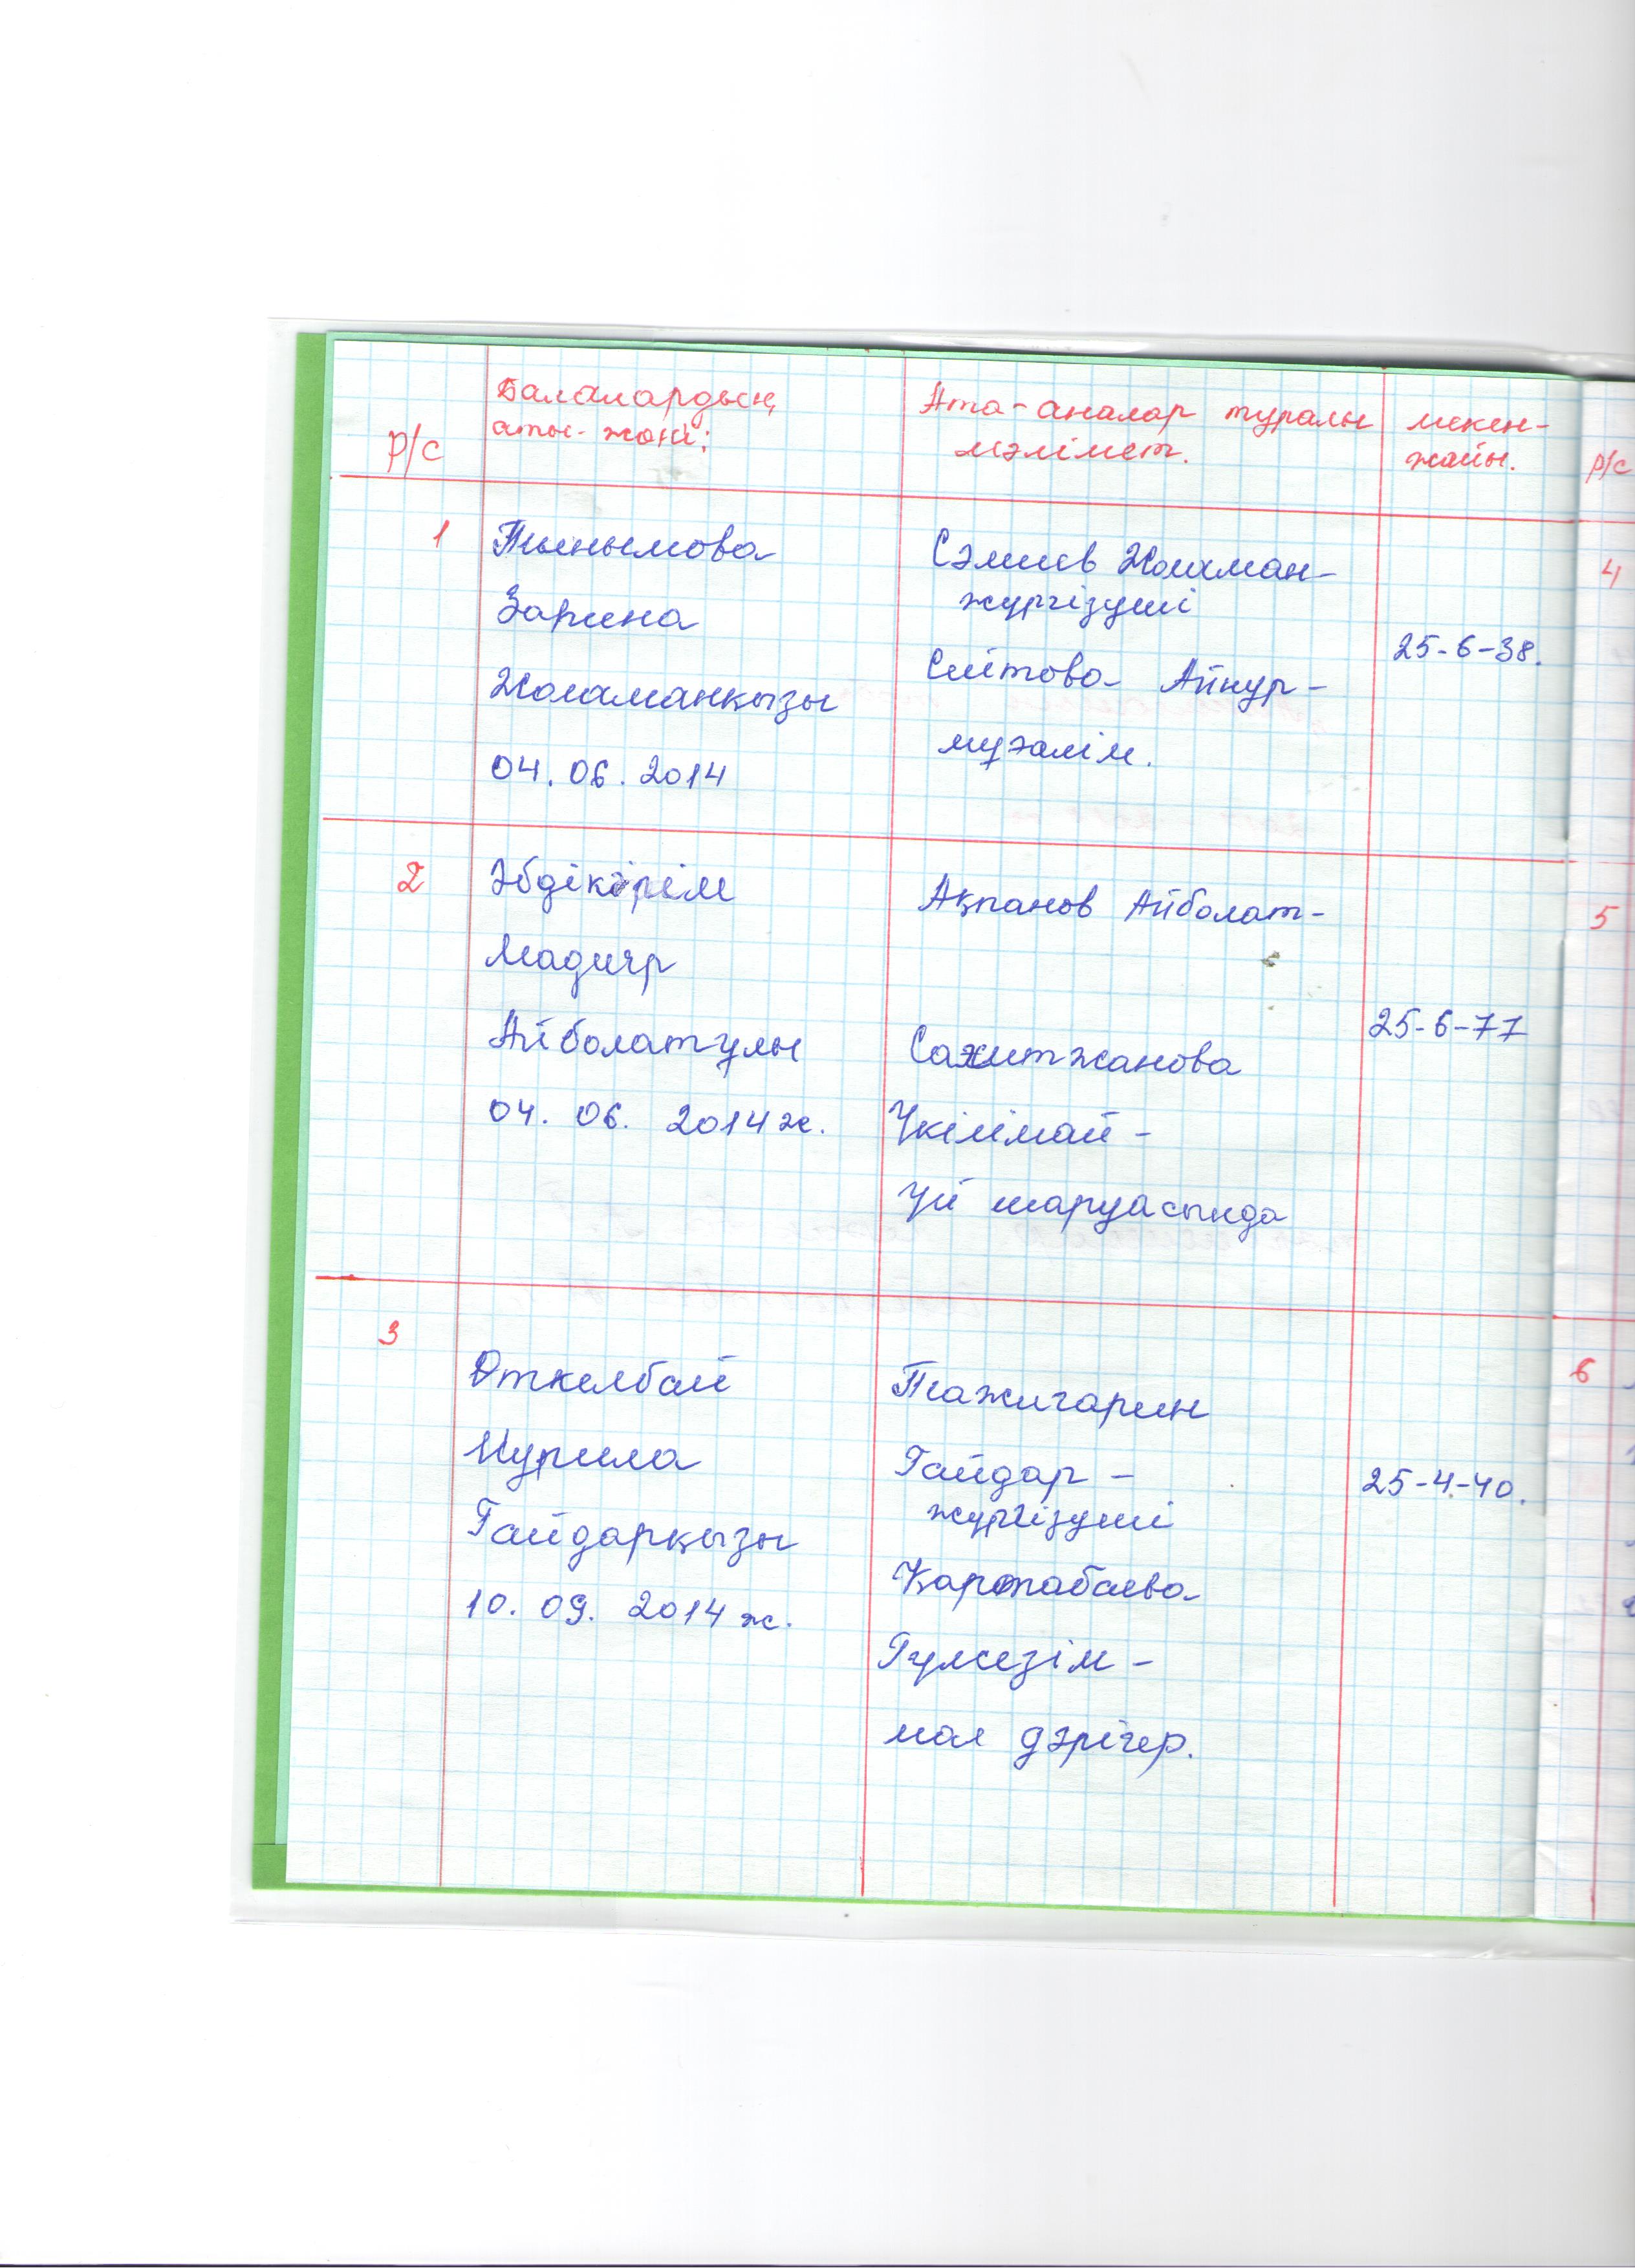 р/с
Балалардың
аты-жөні:
Ата-аналар туралы
мәлімет.
мекен-
жайы.
1
Тынымова
Зарина
Жоламанқызы
04.06.2014
Сәлиев Жоламан-
жүргізуші
Сейтова Айнур-
мұғалім.
25-6-38.
2
Әбдікәрім
Мадияр
Айболатұлы
04. 06. 2014ж.
Ақпанов Айболат-
Сахитжанова
Үкілімай-
Үй шаруасында
25-6-77
3
Өткелбай
Нурила
Гайдарқызы
10. 09. 2014ж.
Тажигарин
Гайдар-
жүргізуші
Қаржабаева
Гүлсезім-
мал дәрігер.
25-4-40.
р/с
4
5
6